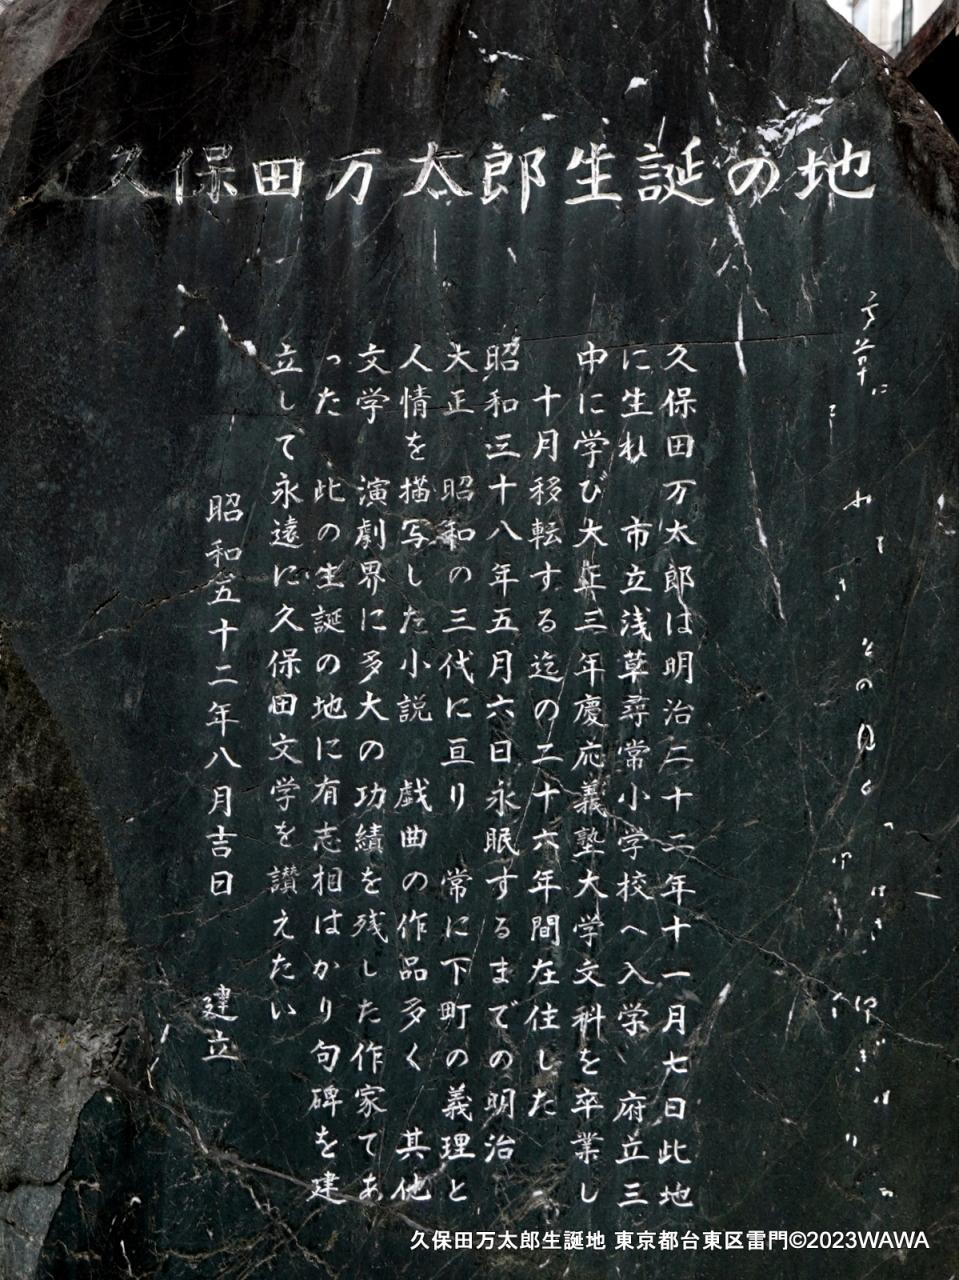 久保田万太郎生誕の地
久保田万太郎は明治二十二年十一月七日此地
に生れ　市立浅草尋常小学校へ入学　府立三
中に学び大正三年慶応義塾大学文科を卒業し
十月移転する迄の二十六年間在住した
昭和三十八年五月六日永眠するまでの明治
大正　昭和の三代に亘り　常に下町の義理と
人情を描写した小説　戯曲の作品多く　其他
文学　演劇界に多大の功績を残した作家であ
った　此の生誕の地に有志相はかり句碑を建
立して永遠に久保田文学を讃えたい
昭和五十二年八月吉日　建立
久保田万太郎生誕地 東京都台東区雷門©2023WAWA